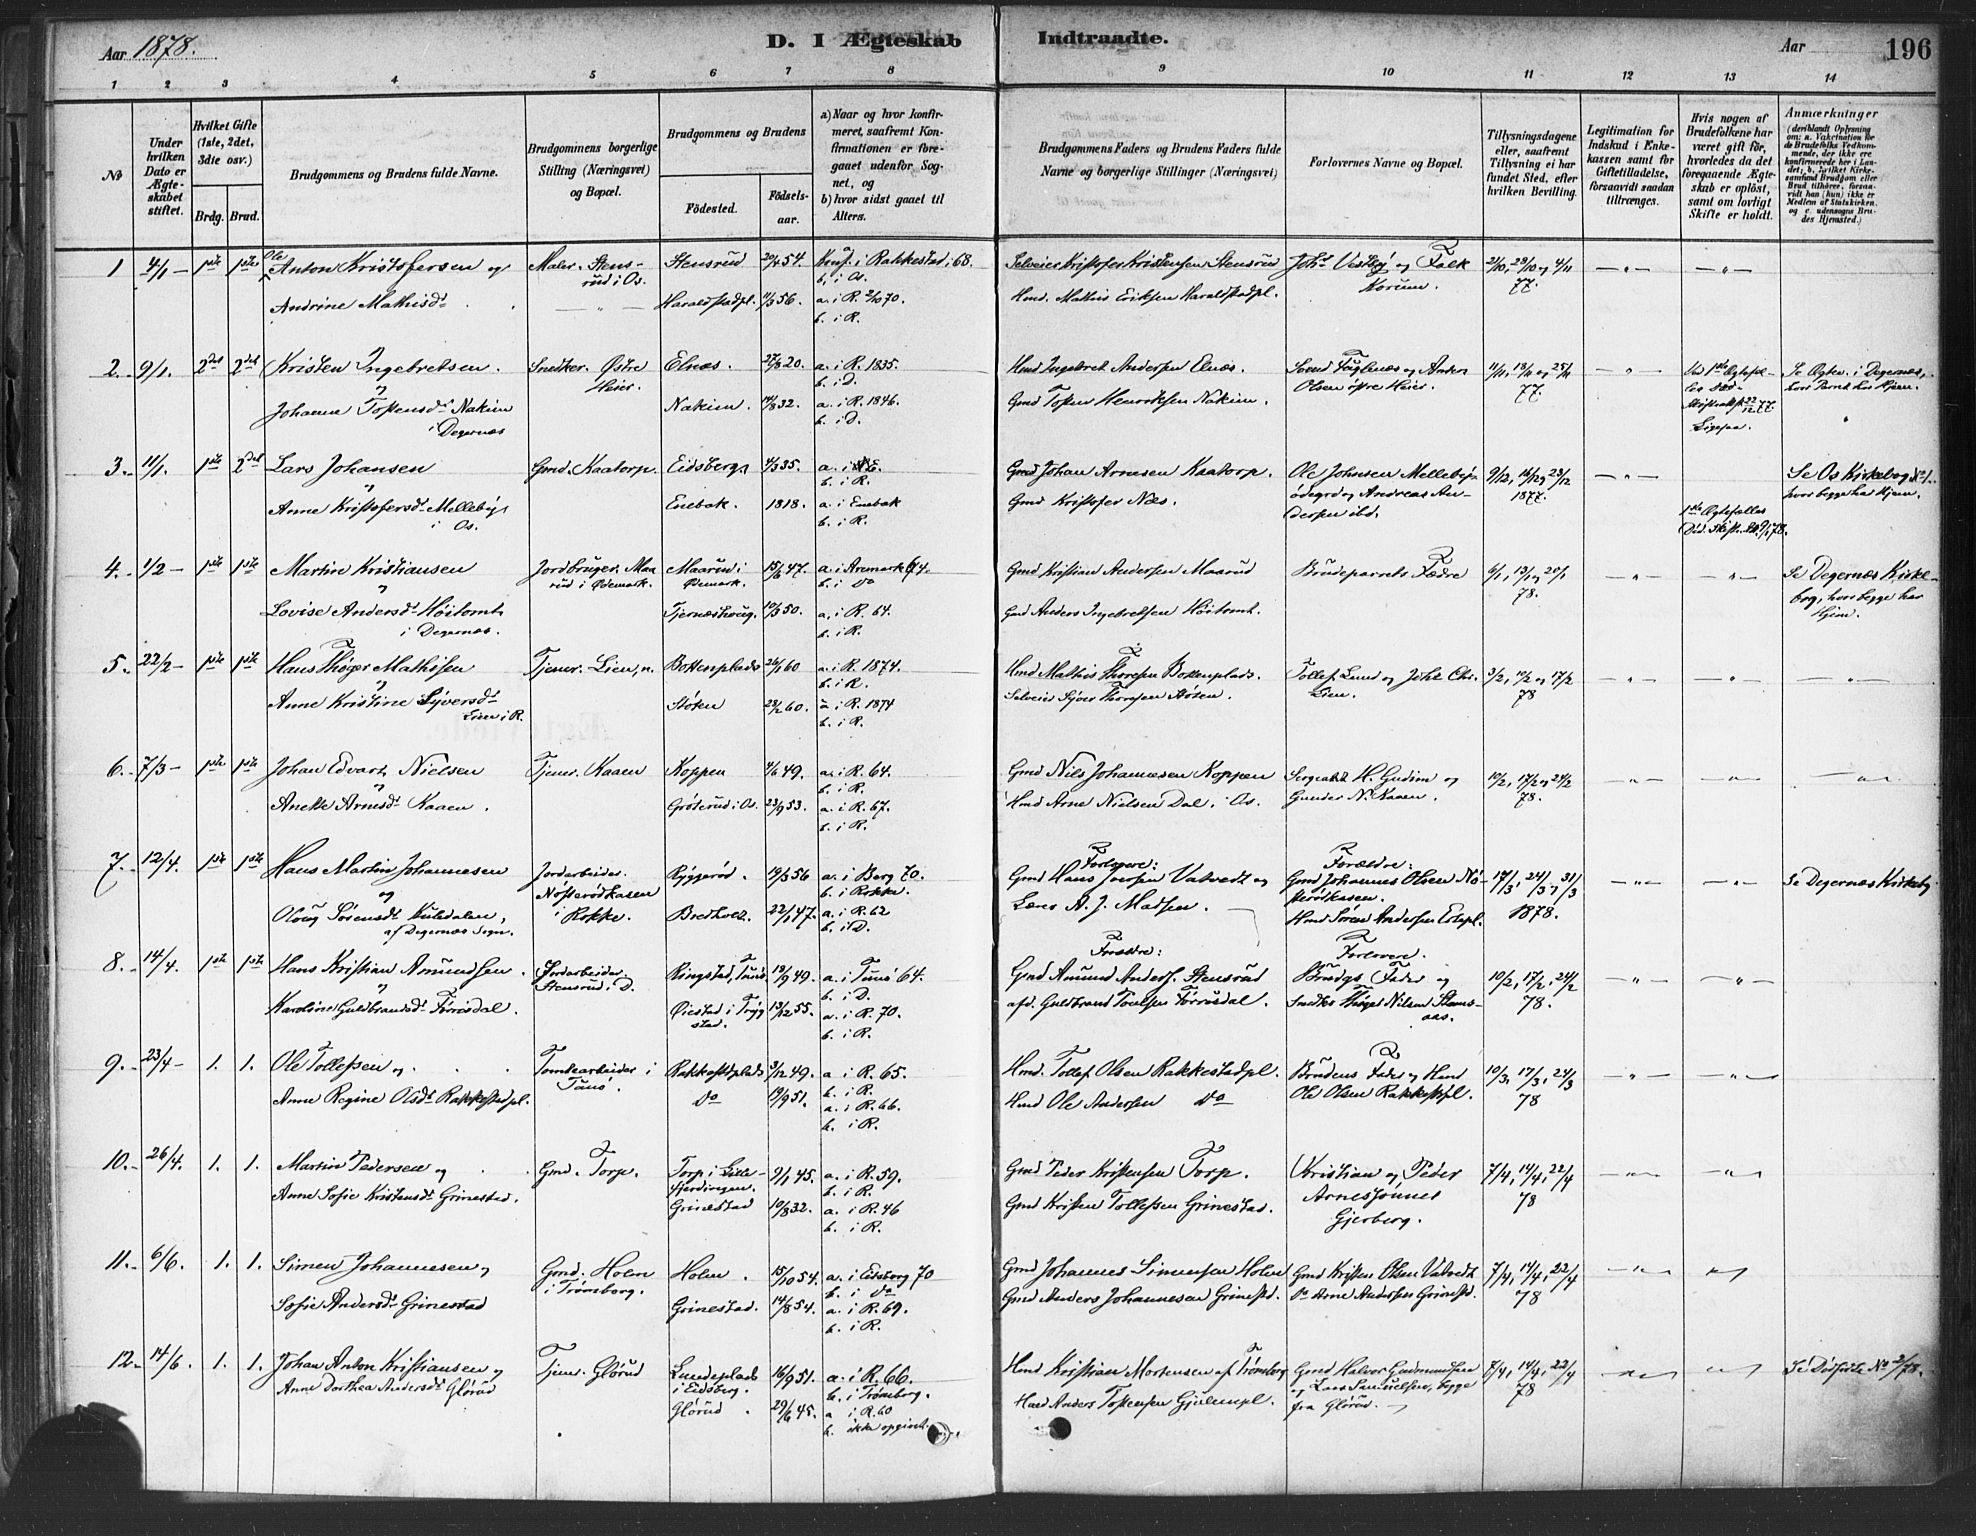 Aar 1878.
D. I Ægteskab Indtraadte.
Aar
196
1 2 3 4 5 6 7 8 9 10 11 12 13 14
No
Under hvilken Dato er Ægteskabet stiftet.
Hvilket Gifte (1ste, 2det, 3die osv.)
Brdg. Brud.
Brudgommens og Brudens fulde Navne.
Brudgommens borgerlige Stilling (Næringsvei) og Bopæl.
Brudgommens og Brudens
Fødested.
Fødselsaar.
a) Naar og hvor konfirmeret, saafremt Konfirmationen er foregaaet udenfor Sognet, og
b) hvor sidst gaaet til Alters.
Brudgommens Faders og Brudens Faders fulde Navne og borgerlige Stillinger (Næringsvei)
Forlovernes Navne og Bopæl.
Tillysningsdagene eller, saafremt Tillysning ei har fundet Sted, efter hvilken Bevilling.
Legitimation for Indskud i Enkekassen samt for Giftetilladelse, forsaavidt saadan tiltrænges.
Hvis nogen af Brudefolkene har været gift før, hvorledes da det foregaaende Ægteskab er opløst, samt om lovligt Skifte er holdt.
Anmærkninger
(deriblandt Oplysning om: a. Vakcination for de Brudefolks Vedkommende, der ikke ere konfirmerede her i Landet; b. hvilket Kirkesamfund Brudgom eller Brud tilhører, forsaavidt han (hun) ikke er Medlem af Statskirken. og c. udensogns Brudes Hjemsted.)
1 4/1 - 1ste 1ste Ole Anton Kristofersen og Maler. Stensrud i Os. Stensrud 54. Konf. i Rakkestad i 68. b. i Os. Selveier Kristofer Kristensen Stensrud Johs Vestby og Falk Korum. 77.
Andrine Mathisdt Haraldstadpl. 11/3 56. a. i R. 2/10 70. b. i R. Hmd. Mathis Eriksen Haraldstadpl.
2. 9/1. 2det 2det Kristen Ingebretsen. og Snedker. Østre Heier. Elnæs. 27/8 20. a. i R. 1835. b. i D. Hmd Ingebret Andersen Elnæs. Fuglenæs og Anders Olsen østre Heier. 77. Se Degernæs,
Johanne Tostensdt Nakim i Degernæs Nakim. 14/8 32. a. i R. 1846. b. i D. Gmd Tosten Henriksen Nakim.
3. 11/1. 1ste 2det Lars Johansen og Gmd. Kaatorp. Eidsberg. 4/3 35. b. i R. Gmd Johan Arnesen Kaatorp. Ole Johnsen Mellebyødegrd og Andreas Andersen ibd. 9/12, 16/12 og 23/12 1877. Se Os Kirkebog No 1. hvor begge har Hjem.
Anne Kristofersdt Melleby i Os. Enebak. 1818. a. i Enebak b. i R. Gmd Kristofer Næs.
4. 1/2 - 1ste 1ste Martin Kristiansen og Jordbruger. Maarud i Ødemark. Maarud i Ødemark. 15/6 47. a. i Aremark 64. b. i do Gmd Kristian Andersen Maarud Brudeparrets Fædre 6/1, 13/1 og 20/1 78. Se Degernæs Kirkebog, hvor begge har Hjem.
Lovise Andersdt Høitomt i Degernæs. Tjernæshoug. 10/3 50. a. i R. 64. b. i R. Gmd Anders Ingebretsen Høitomt.
5. 22/2 - 1ste 1ste Hans Thøger Mathisen og Tjener. Lien, Bottenplads 60 a. i R. 1874. b. i R. Hmd Mathis Thoresen Bottenplads. Tollef Lund og Johs Chr. Lien. 3/2, 10/2 og 17/2 78
Anne Kristine Syversdt Lien i R. Støken 28/2 60. a. i R. 1874 b. i R. Selveier Syver Thoresen Støken.
6. 7/3 - 1ste 1ste Johan Edvart Nielsen og Tjener. Kaaen Koppen 4/6 49. a. i R. 64. b. i R. Gmd Nils Johannesen Koppen Sergeant H. Gudim og Gunder N. Kaaen. 10/2, 17/2 og 24/2 78.
Anette Arnesdt Kaaen. Grøterud i Os. 23/9 53. a. i R. 67. b. i R. Hmd Arne Nielsen Dal. i Os.
7. 12/4. 1ste 1ste Hans Martin Johannesen og Jordarbeider. Nøsterødkasen i Rokke. Ryggerød. 19/3 56 a. i Berg 70. b. i Rokke. Forlovere: Gmd Hans Iversen Vatvedt og Lærer A. J. Madsen. Forældre: Gmd Johannes Olsen Nøsterødkasen. 17/3, 24/3, 31/3 1878. Se Degernæs Kirkebg
Oloug Sørensdt Kuldalen, af Degernæs Sogn. Bredholt. 22/1 47. a. i R. 62 b. i D. Hmd Søren Andersen Estepl.
8. 14/4. 1ste 1ste Hans Kristian Amundsen. og Jordarbeider. Stensrud i D. Ringstad, Tunø 18/9 49. a. i Tunø 64. b. i D. Forældre: Gmd Amund Anders. Stensrud Forlovere: Brudgs Fader og Snedker Thøger Nilsen 10/2, 17/2, 24/2 78.
Karoline Guldbrandsdt Tørrisdal. Øiestad i Trygstad. 13/12 55. a. i R. 70. b. i R. afd. Guldbrand Toelsen Tørrisdal.
9. 23/4 - 1. 1. Ole Tollefsen og Tomtearbeider i Tunø. Rakkestdplads 3/12 49. a. i R. 65. b. i R. Hmd. Tollef Olsen Rakkestadpl. Brudens Fader og Hmd Ole Olsen Rakkestdpl. 10/3, 17/3, 24/3 78
Anne Regine Olsdt Rakkestadpl. do 19/9 51. a. i R. 66. b. i R. Hmd Ole Andersen do
10. 26/4. 1. 1. Martin Pedersen og Gmd. Torp. Torp i Lillefjerdingen. 9/1 45. a. i R. 59. b. i R. Gmd Peder Kristensen Torp. Kristian og Peder Arnesønner Gjerberg. 7/4, 14/4, 22/4 78
Anne Sofie Kristensdt Grinestad. Grinestad 10/8 32. a. i R. 46 b. i R. Gmd Kristen Tollefsen Grinestad.
11. 6/6. 1. 1. Simen Johannesen og Gmd. Holm i Trømborg. Holm. 15/10 54. a. i Eidsberg 70 b. i do Gmd Johannes Simensen Holm Gmd Kristen Olsen Vatvedt 7/4, 14/4, 22/4 78
Sofie Andersdt Grinestad Grinestad. 14/8 54. a. i R. 69. b. i R. Gmd Anders Johannesen Grinestd. do Arne Andersen Grinestd.
12. 14/6. 1. 1. Johan Anton Kristiansen og Tjener. Glørud Lundeplads i Eidsberg. 16/9 51. a. i R. 66. b. i Trømborg. Hmd Kristian Mortensen af Trømborg Gmd Halvor Gudmundsen og Lars Samuelsen, begge fra Glørud. 7/4, 14/4, 22/4 78 Se No 2/78.
Anne Dorthea Andersdt Glørud Glørud. 29/6 45. a i R. 60 b. ikke opgivet. Hmd Anders Tostensen Gjulempl.